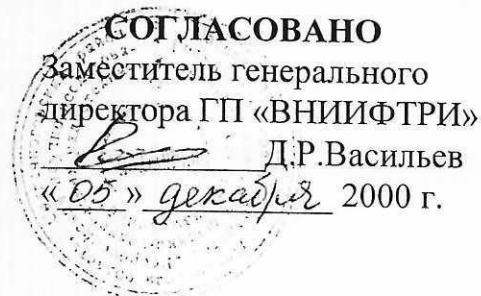 СОГЛАСОВАНО
Заместитель генерального
директора ГП «ВНИИФТРИ»
Д.Р.Васильев
«05» декабря 2000 г.